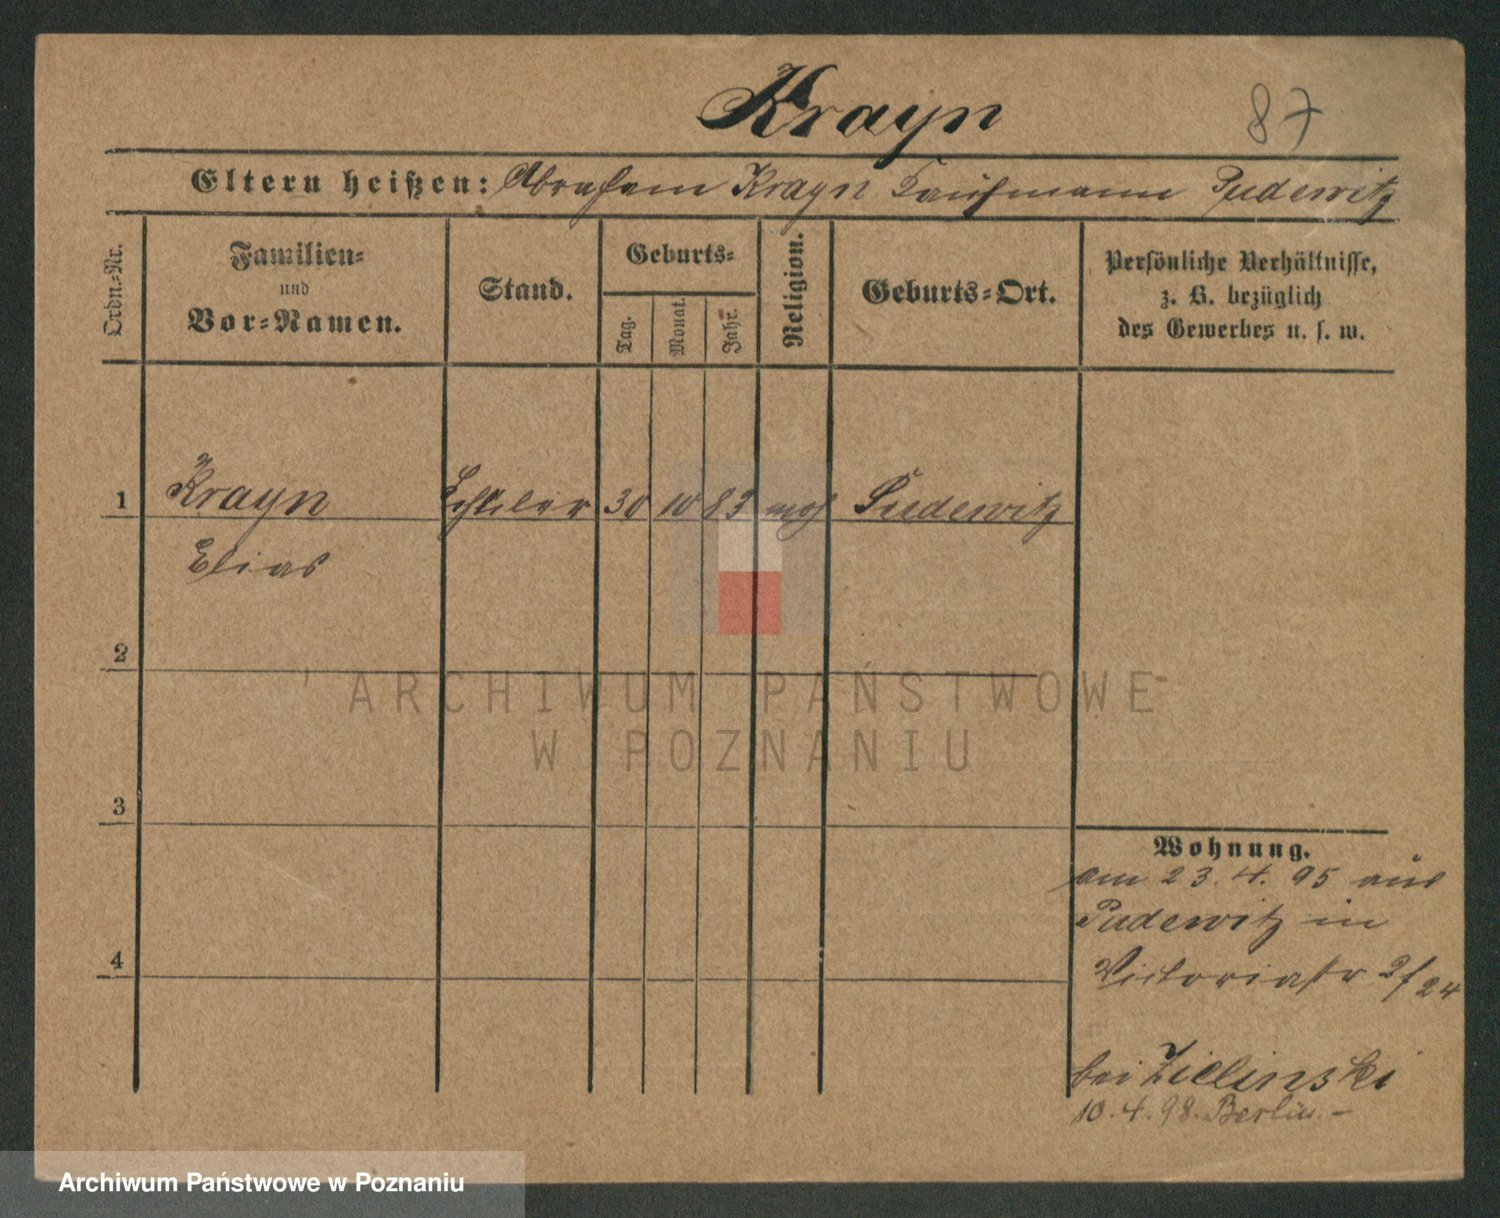 Krayn
87
Eltern heißen: Abraham Krayn Kaufmann Pudewitz
Ordn.-Nr.
Familien-
und
Vor-Namen.
Stand.
Geburts-
Tag.
Monat.
Jahr.
Religion.
Geburts-Ort.
Persönliche Verhältnisse,
z. B. bezüglich
des Gewerbes u. s. w.
1 Krayn Schüler 30 10 83 mos Pudewitz
Elias
2
ARCHIWUM PAŃSTWOWE
W POZNANIU
3
Wohnung.
am 23. 4. 95 aus
Pudewitz in
4
Victoriastr 2/24
bei Zielinski
10. 4. 98. Berlin. –
Archiwum Państwowe w Poznaniu